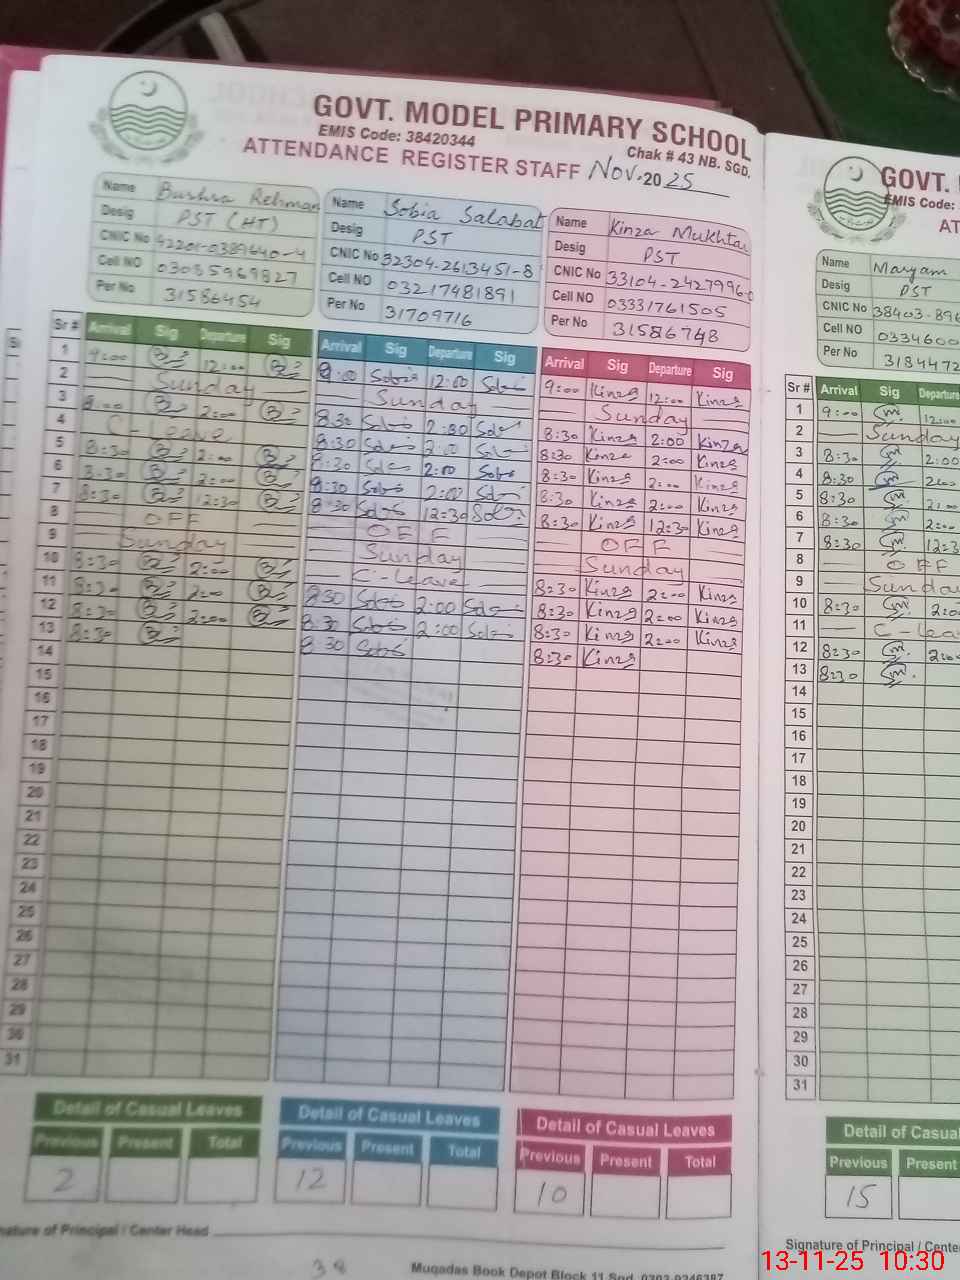 GOVT. MODEL PRIMARY SCHOOL
EMIS Code: 38420344
Chak # 43 NB. SGD.
ATTENDANCE REGISTER STAFF Nov. 2025
Name Bushra Rehman
Desig PST (HT)
CNIC No 42201-0389640-4
Cell NO 03085969827
Per No 31586454
Name Sobia Salabat
Desig PST
CNIC No 32304-2613451-8
Cell NO 03217481891
Per No 31709716
Name Kinza Mukhtar
Desig PST
CNIC No 33104-2427996-0
Cell NO 03331761505
Per No 31586748
Sr # Arrival Sig Departure Sig Arrival Sig Departure Sig Arrival Sig Departure Sig
1 9:00 12:00 9:00 Sobia 12:00 Sobia 9:00 Kinza 12:00 Kinza
2 Sunday Sunday Sunday
3 8:00 2:00 8:30 Sobia 2:00 Sobia 8:30 Kinza 2:00 Kinza
4 C-Leave 8:30 Sobia 2:00 Sobia 8:30 Kinza 2:00 Kinza
5 8:30 2:00 8:30 Sobia 2:00 Sobia 8:30 Kinza 2:00 Kinza
6 8:30 2:00 8:30 Sobia 2:00 Sobia 8:30 Kinza 2:00 Kinza
7 8:30 12:30 8:30 Sobia 12:30 Sobia 8:30 Kinza 12:30 Kinza
8 OFF OFF OFF
9 Sunday Sunday Sunday
10 8:30 2:00 C-Leave 8:30 Kinza 2:00 Kinza
11 8:30 2:00 8:30 Sobia 2:00 Sobia 8:30 Kinza 2:00 Kinza
12 8:30 2:00 8:30 Sobia 2:00 Sobia 8:30 Kinza 2:00 Kinza
13 8:30 8:30 Sobia 8:30 Kinza
14
15
16
17
18
19
20
21
22
23
24
25
26
27
28
29
30
31
Detail of Casual Leaves Detail of Casual Leaves Detail of Casual Leaves
Previous Present Total Previous Present Total Previous Present Total
2 12 10
Signature of Principal / Center Head
38
Muqadas Book Depot Block 11 Sgd.
GOVT.
EMIS Code:
AT
Name Maryam
Desig PST
CNIC No 38403-896
Cell NO 0334600
Per No 3184472
Sr # Arrival Sig Departure
1 9:00 12:00
2 Sunday
3 8:30 2:00
4 8:30 2:00
5 8:30 2:00
6 8:30 2:00
7 8:30 12:3
8 OFF
9 Sunday
10 8:30 2:00
11 C-Lea
12 8:30 2:00
13 8:30
14
15
16
17
18
19
20
21
22
23
24
25
26
27
28
29
30
31
Detail of Casual
Previous Present
15
Signature of Principal / Cente
13-11-25 10:30